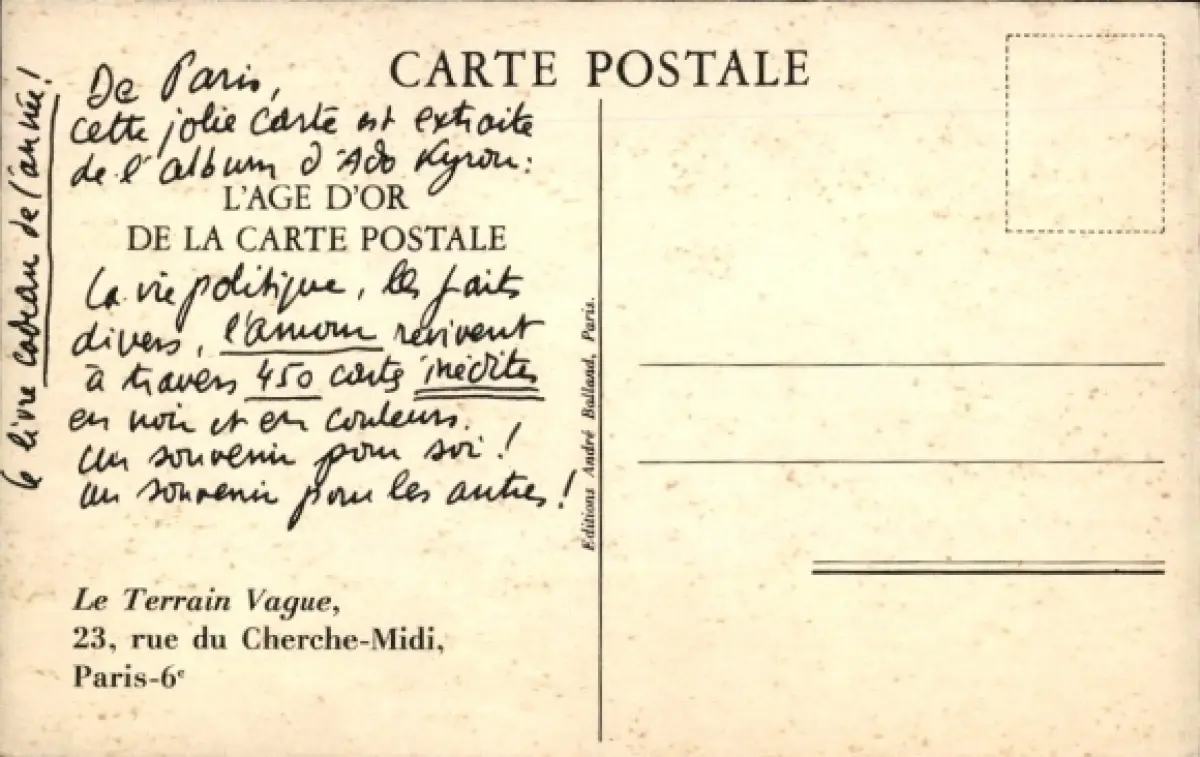 CARTE POSTALE
De Paris,
cette jolie carte est extraite
de l'album d'Ado Kyrou:
L'AGE D'OR
DE LA CARTE POSTALE
La vie politique, les faits
divers, l'amour revivent
à travers 450 cartes inédites
en noir et en couleurs.
un souvenir pour soi !
un souvenir pour les autres !
le livre cadeau de l'année !
Le Terrain Vague,
23, rue du Cherche-Midi,
Paris-6e
Editions André Balland, Paris.